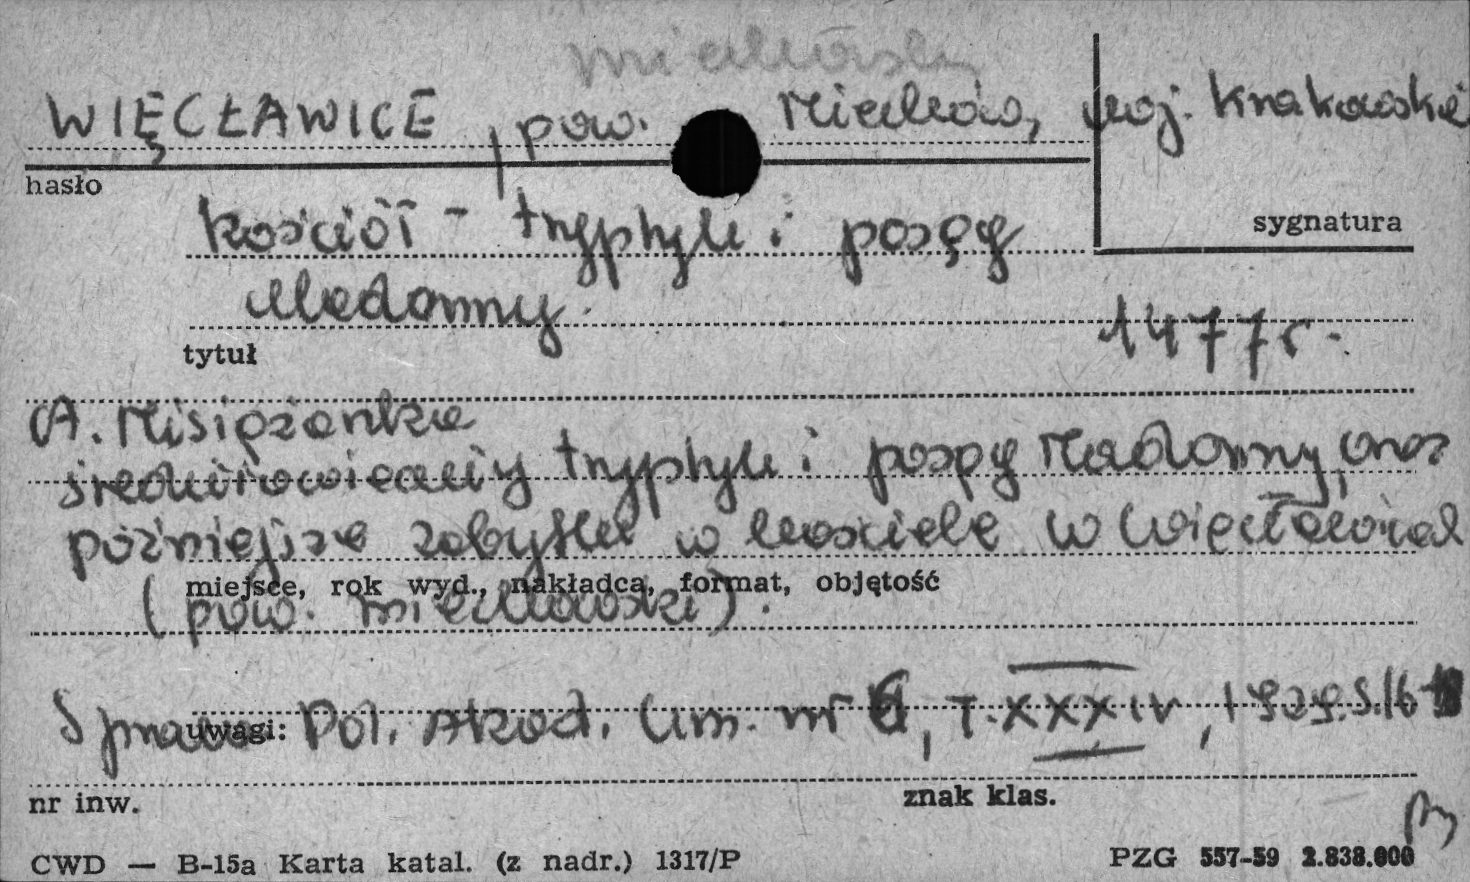 miechowski
WIĘCŁAWICE, pow. Miechów, woj. Krakowskie
hasło
sygnatura
Kościół - tryptyk i posąg
Madonny.
1477 r.
tytuł
A. Misiążanka
średniowieczny tryptyk i posąg Madonny, oraz
późniejsze zabytki w kościele w Więcławicach
miejsce, rok wyd., nakładca, format, objętość
(pow. miechowski).
Sprawo Pol. Akad. Um. nr 6, T. XXXIV, 1929. S. 16
uwagi:
nr inw.
znak klas.
CWD — B-15a Karta katal. (z nadr.) 1317/P
PZG 557-59 2.838.000